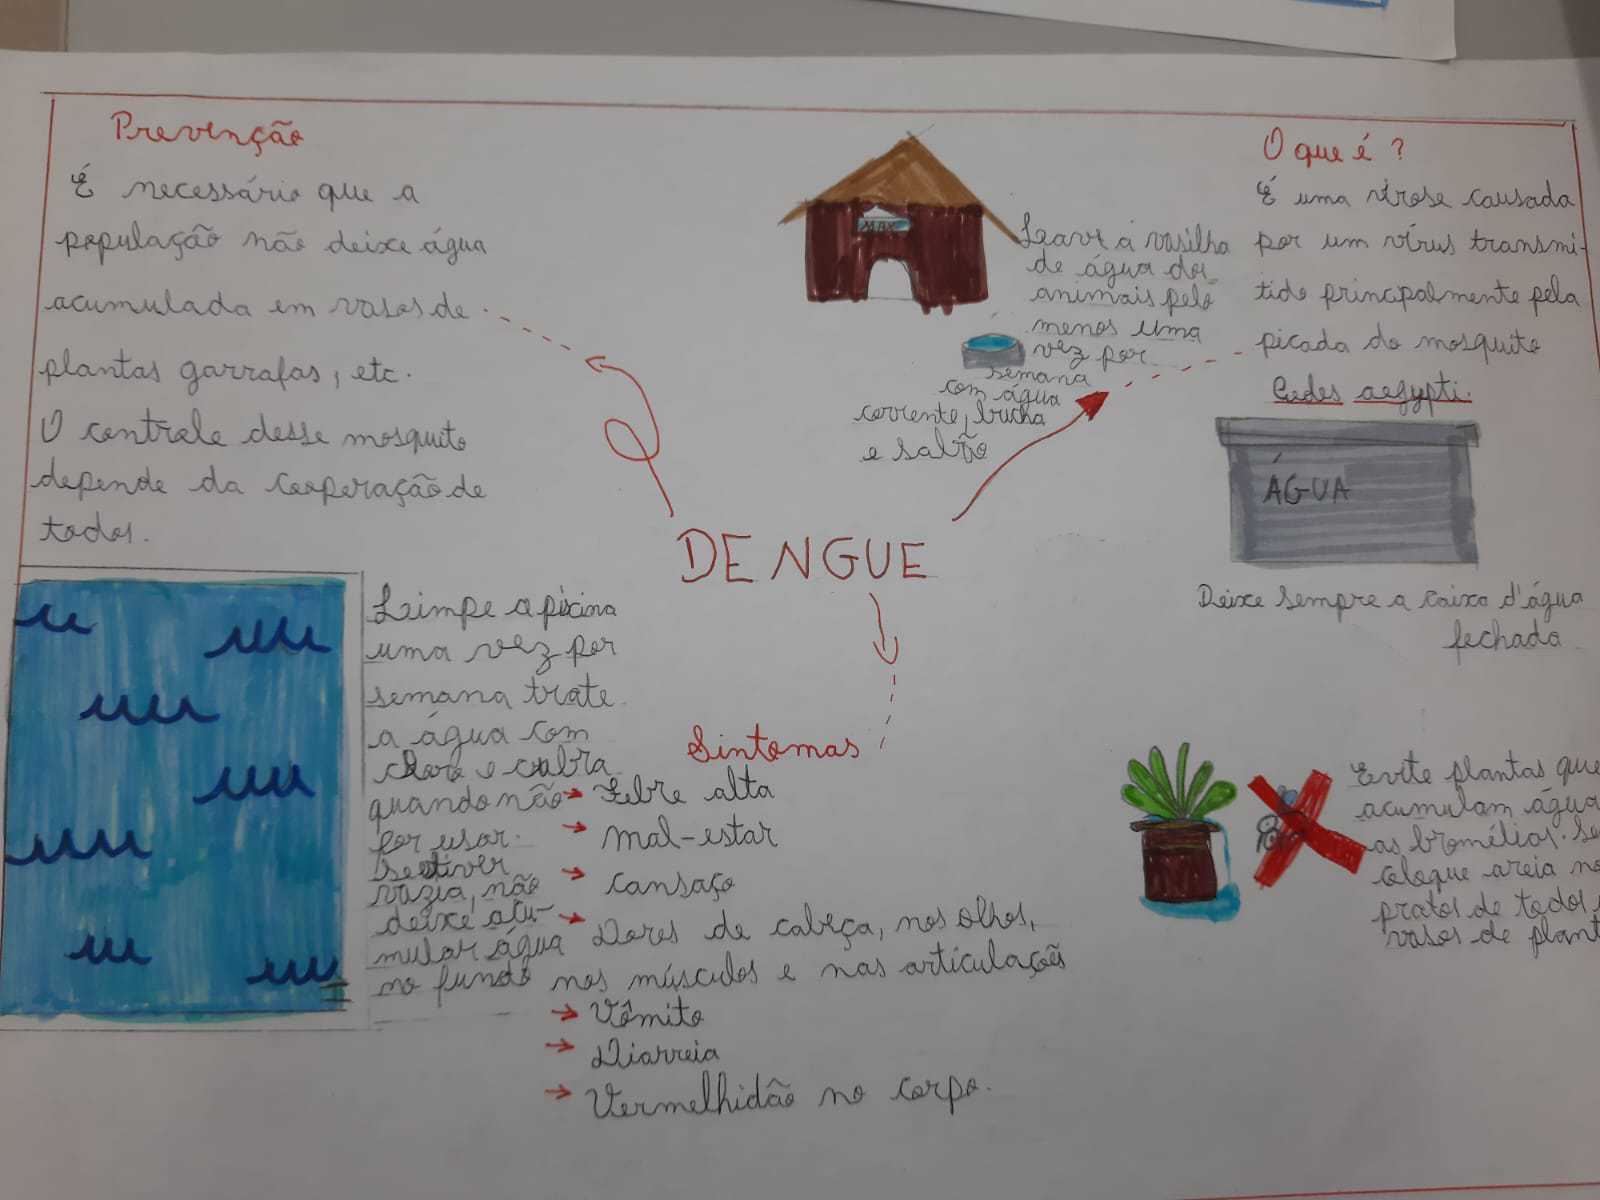 Prevenção
É necessário que a
população não deixe água
acumulada em vasos de
plantas garrafas, etc.
O controle desse mosquito
depende da cooperação de
todos.
MAX
Lave a vasilha
de água dos
animais pelo
menos uma
vez por
semana
com água
corrente, bucha
e sabão
O que é ?
É uma virose causada
por um vírus transmi-
tido principalmente pela
picada do mosquito
Aedes aegypti.
ÁGUA
Deixe sempre a caixa d'água
fechada
DENGUE
Limpe a piscina
uma vez por
semana trate
a água com
cloro e cubra
quando não
for usar.
Se estiver
vazia, não
deixe acu-
mular água
no fundo
Sintomas
→ Febre alta
→ Mal-estar
→ Cansaço
→ Dores de cabeça, nos olhos,
nos músculos e nas articulações
→ Vômito
→ Diarreia
→ Vermelhidão no corpo.
Evite plantas que
acumulam água
as bromélias. Se
Coloque areia no
pratos de todos
vasos de plant